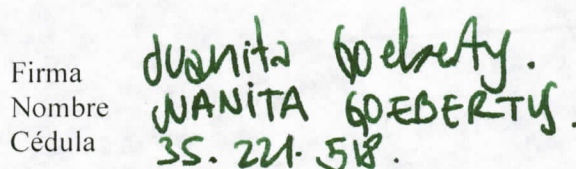 Firma Juanita Goeberty.
Nombre JUANITA GOEBERTUS.
Cédula 35. 221. 518.